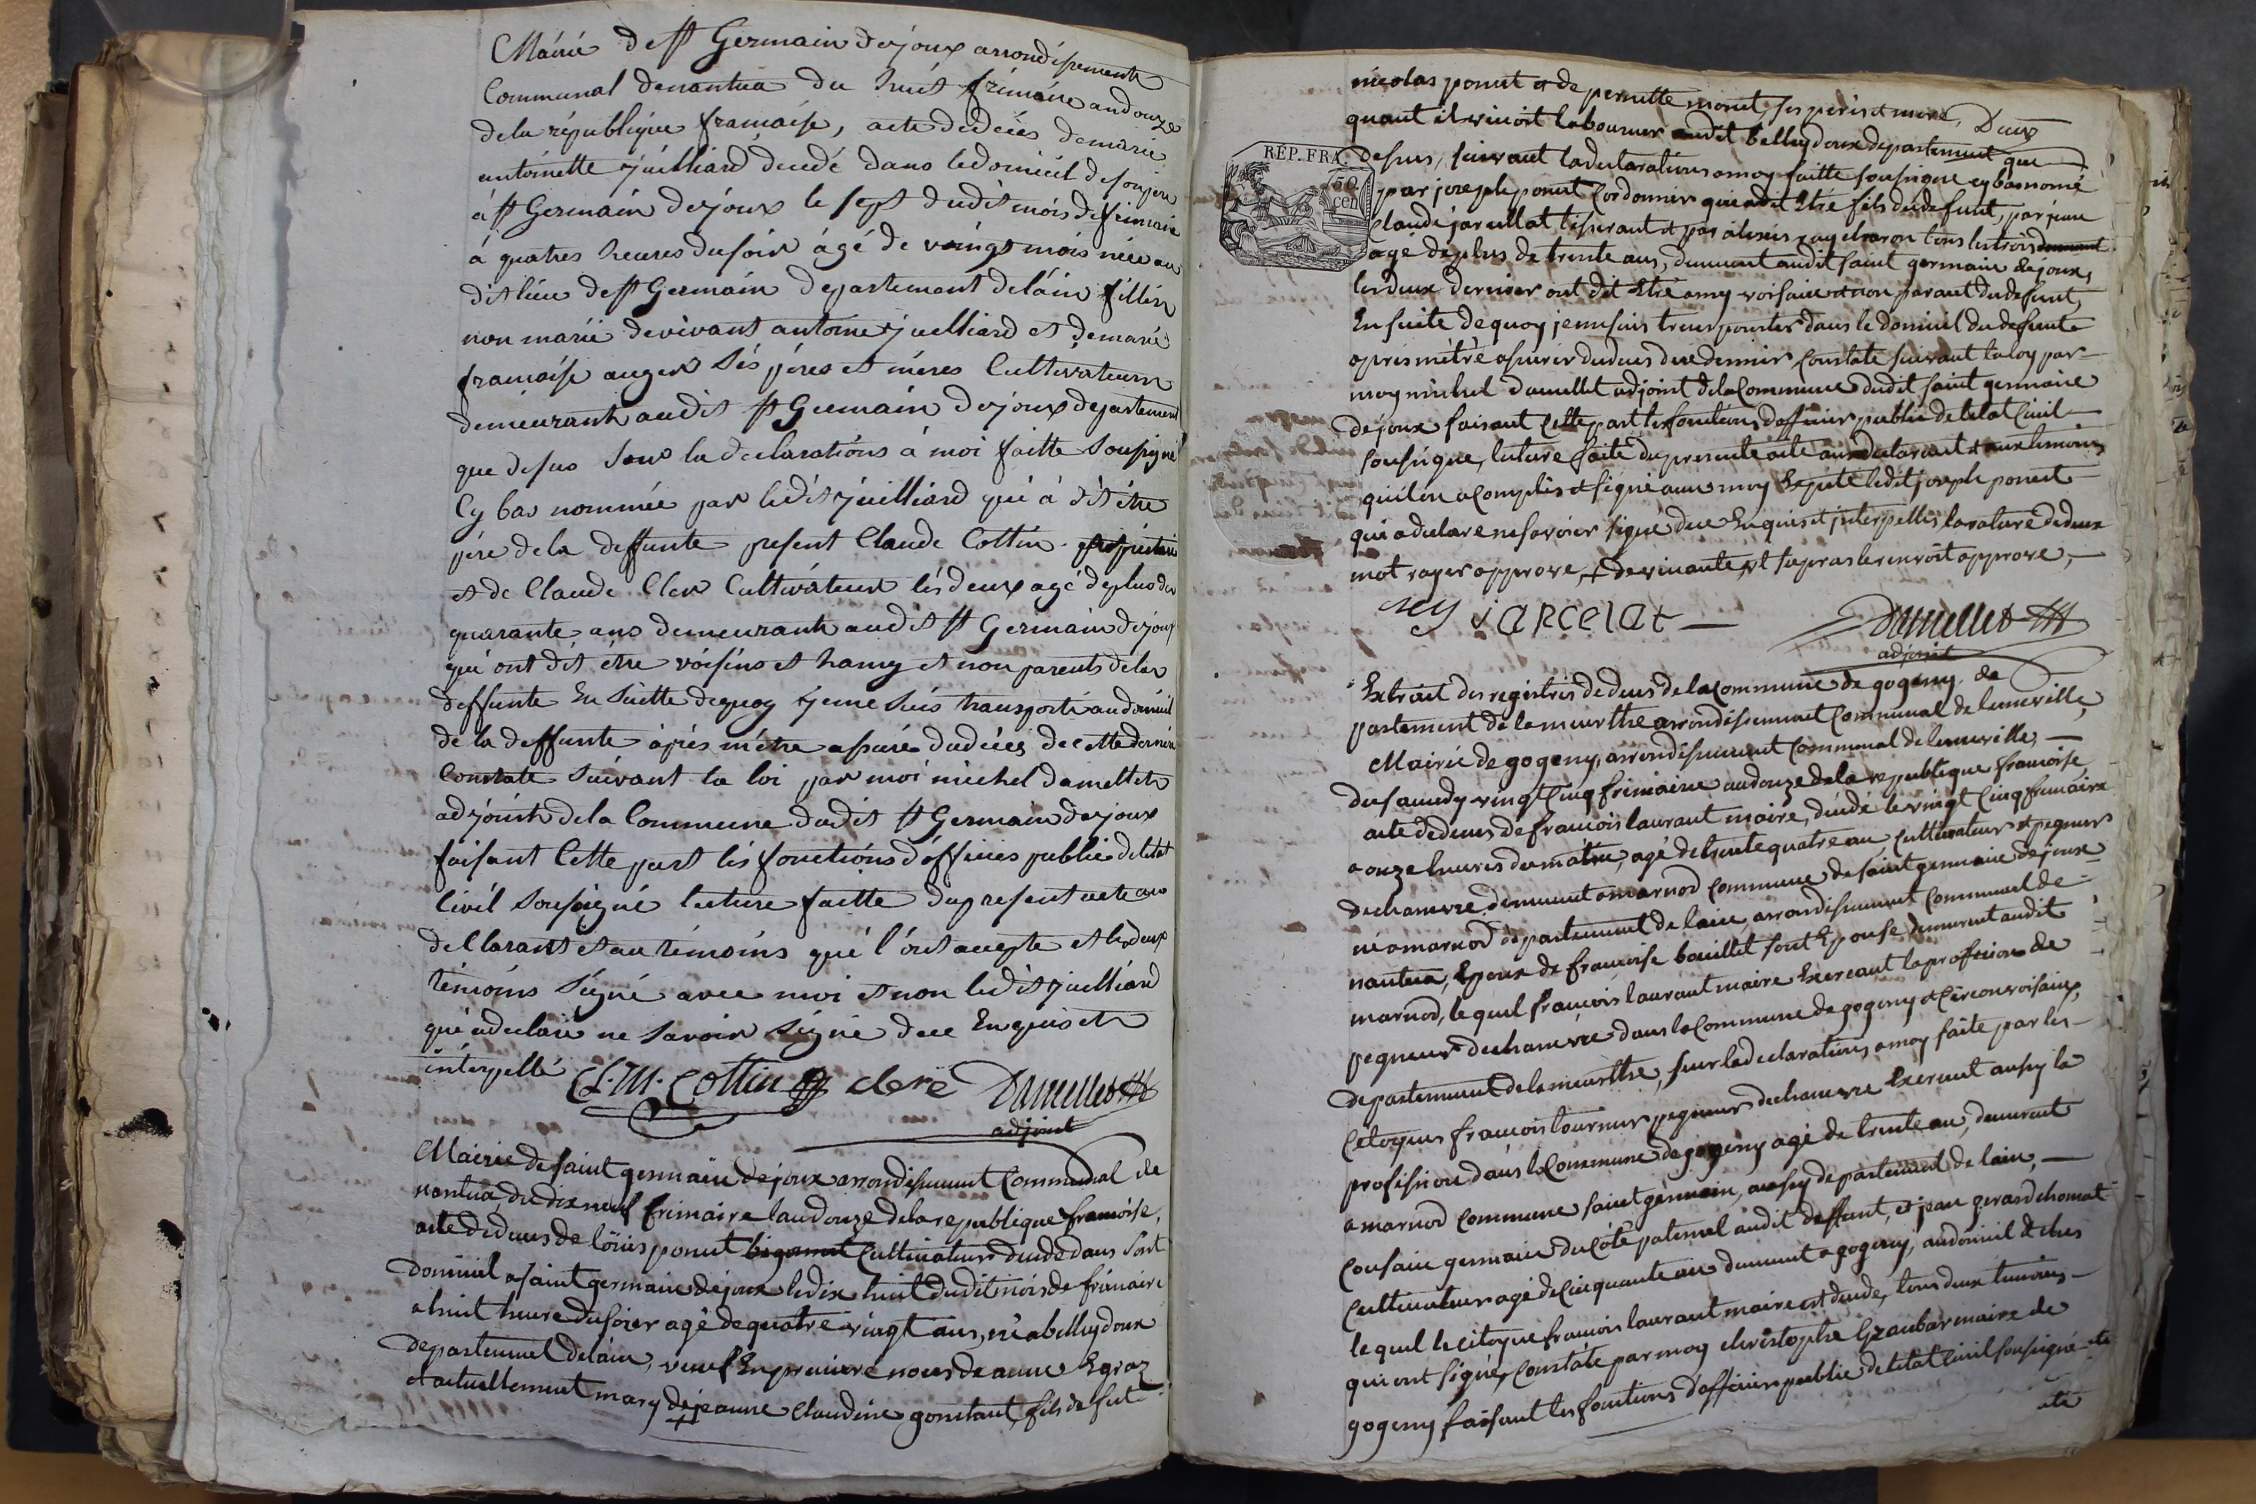 Mairie de st Germain dejoux arrondissement
Communal denantua du huit frimaire an douze
dela république française, acte dedeces demarie
antoinette juilliard decedé dans ledomicil desonpere
à st Germain dejoux le sept dudit mois defrimaire
à quatres heures dusoir âgé de vingt mois née au
dit lieu de st Germain departement delain fille
non marié devivant antoine juilliard et demarie
françoise auger sés péres et méres Cultivateurs
demeurant audit st Germain dejoux departement
que desus sur la déclarations à moi faitte Soussigné
Cy bas nommée par ledit juilliard qui à dit être
pére dela deffunte present Claude Cottin propriétaire
et de Claude Cler Cultivateur lés deux agé deplus de
quarante ans demeurant audit st Germain dejoux
qui ont dit être voisins et hamy et non parents dela
deffunte En Suitte dequoy jeme suis transporté audomicil
de la deffunte après métre assuré dudéces decette derniere
Constate suivant la loi par moi michel damellet
adjoint dela Commune dudit st Germain dejoux
faisant Cette part lés fonctions d'officier public deletat
Civil Soussigné lecture faitte du present acte au
declarant et au témoins qui l'ont accepte et lesdeux
témoins signé avec moi et non ledit juilliard
qui adeclaré ne savoir signé de ce Enquis et
interpellé
Cl. M. Cottin clere Damellet
adjoint
Mairie de saint germain dejoux arrondissement Communal de
nantua, du dix neuf frimaire lan douze dela republique françoise,
acte dedeces de löuis ponut Cultivateur decede dans sont
domicil a saint germain dejoux ledix huit dudit mois de frimaire
a huit heure dusoir agé de quatre vingt ans, né a belleydoux
departement delain, veuf En premiere noces de anne Egraz
et actuellement mary de jeanne claudine gonstant, fils de fut
nicolas ponut et de pernette monet, ses peres et mere, Deux
quant il vivoit laboureur audit belleydoux departement que
REP. FRA.
50 cen
desus, suivant la declarations a moy faitte soussigne cy bas nomé
par joseph ponut Cordonnier qui a dit Etre fils du defunt, par jean
Claude jarcellat tisserant et par alexis ray charon tous les trois
age deplus de trente ans, demeurant audit saint germain dejoux,
les deux dernier ont dit Etre amy voisains et non parant du defunt,
En suite de quoy je me suis transporter dans le domicil du defunt
apres mètre assurer du deces de ce dernier, Constate suivant la loy par
moy michel damellet adjoint de la Commune dudit saint germain
dejoux faisant Cette part les fonctions d'officier public de letat Civil
soussigne, lecture faite du presente acte au declarant et aux temoins
qui l'on acomplis et signe avec moy Exepte ledit joseph ponut
qui a declare ne savoir signé de ce Enquis et interpelle, la rature de deux
mot rayer approve,
rey jarcelat Damellet
adjoint
Extrait des registres de deces de la Commune de gogeny de
partement de la meurthe arrondissement Communal de luneville,
Mairie de gogeny, arrondissement Communal de luneville,
du samedy vingt Cinq frimaire an douze de la republique françoise
acte dedeces de françois laurant maire, decede le vingt Cinq frimaire
a onze heures du matin, agé de trente quatre an, cultivateur et pegneur
de chanvre, demeurent a marnod Commune de saint germain dejoux
né a marnod departement de lain, arrondissement Communal de
nantua, Epoux de françoise bouillet sont Epouse demeurent audit
marnod, lequel françois laurant maire Exercant la profession de
pegneur de chanvre dans la Commune de gogeny et Circonvoisaines,
departement de la meurthe, sur la declarations a moy faite par les
Citoyens françois tournier pegneur de chanvre Exercent aussy la
profession dans la Commune de gogeny agé de trente an, demeurent
a marnod Commune saint germain, aussy departement de lain,
Cousain germain du côté paternel audit deffunt, et jean gerard chomat
Cultivateur agé de Cinquante an demeurent a gogeny, au domicil et chés
lequel le Citoyen françois laurant maire est decede, tous deux temoins
qui ont signé, Constate par moy christophe Grraubar maire de
gogeny faisant les fonctions d'officier public de letat Civil soussigné